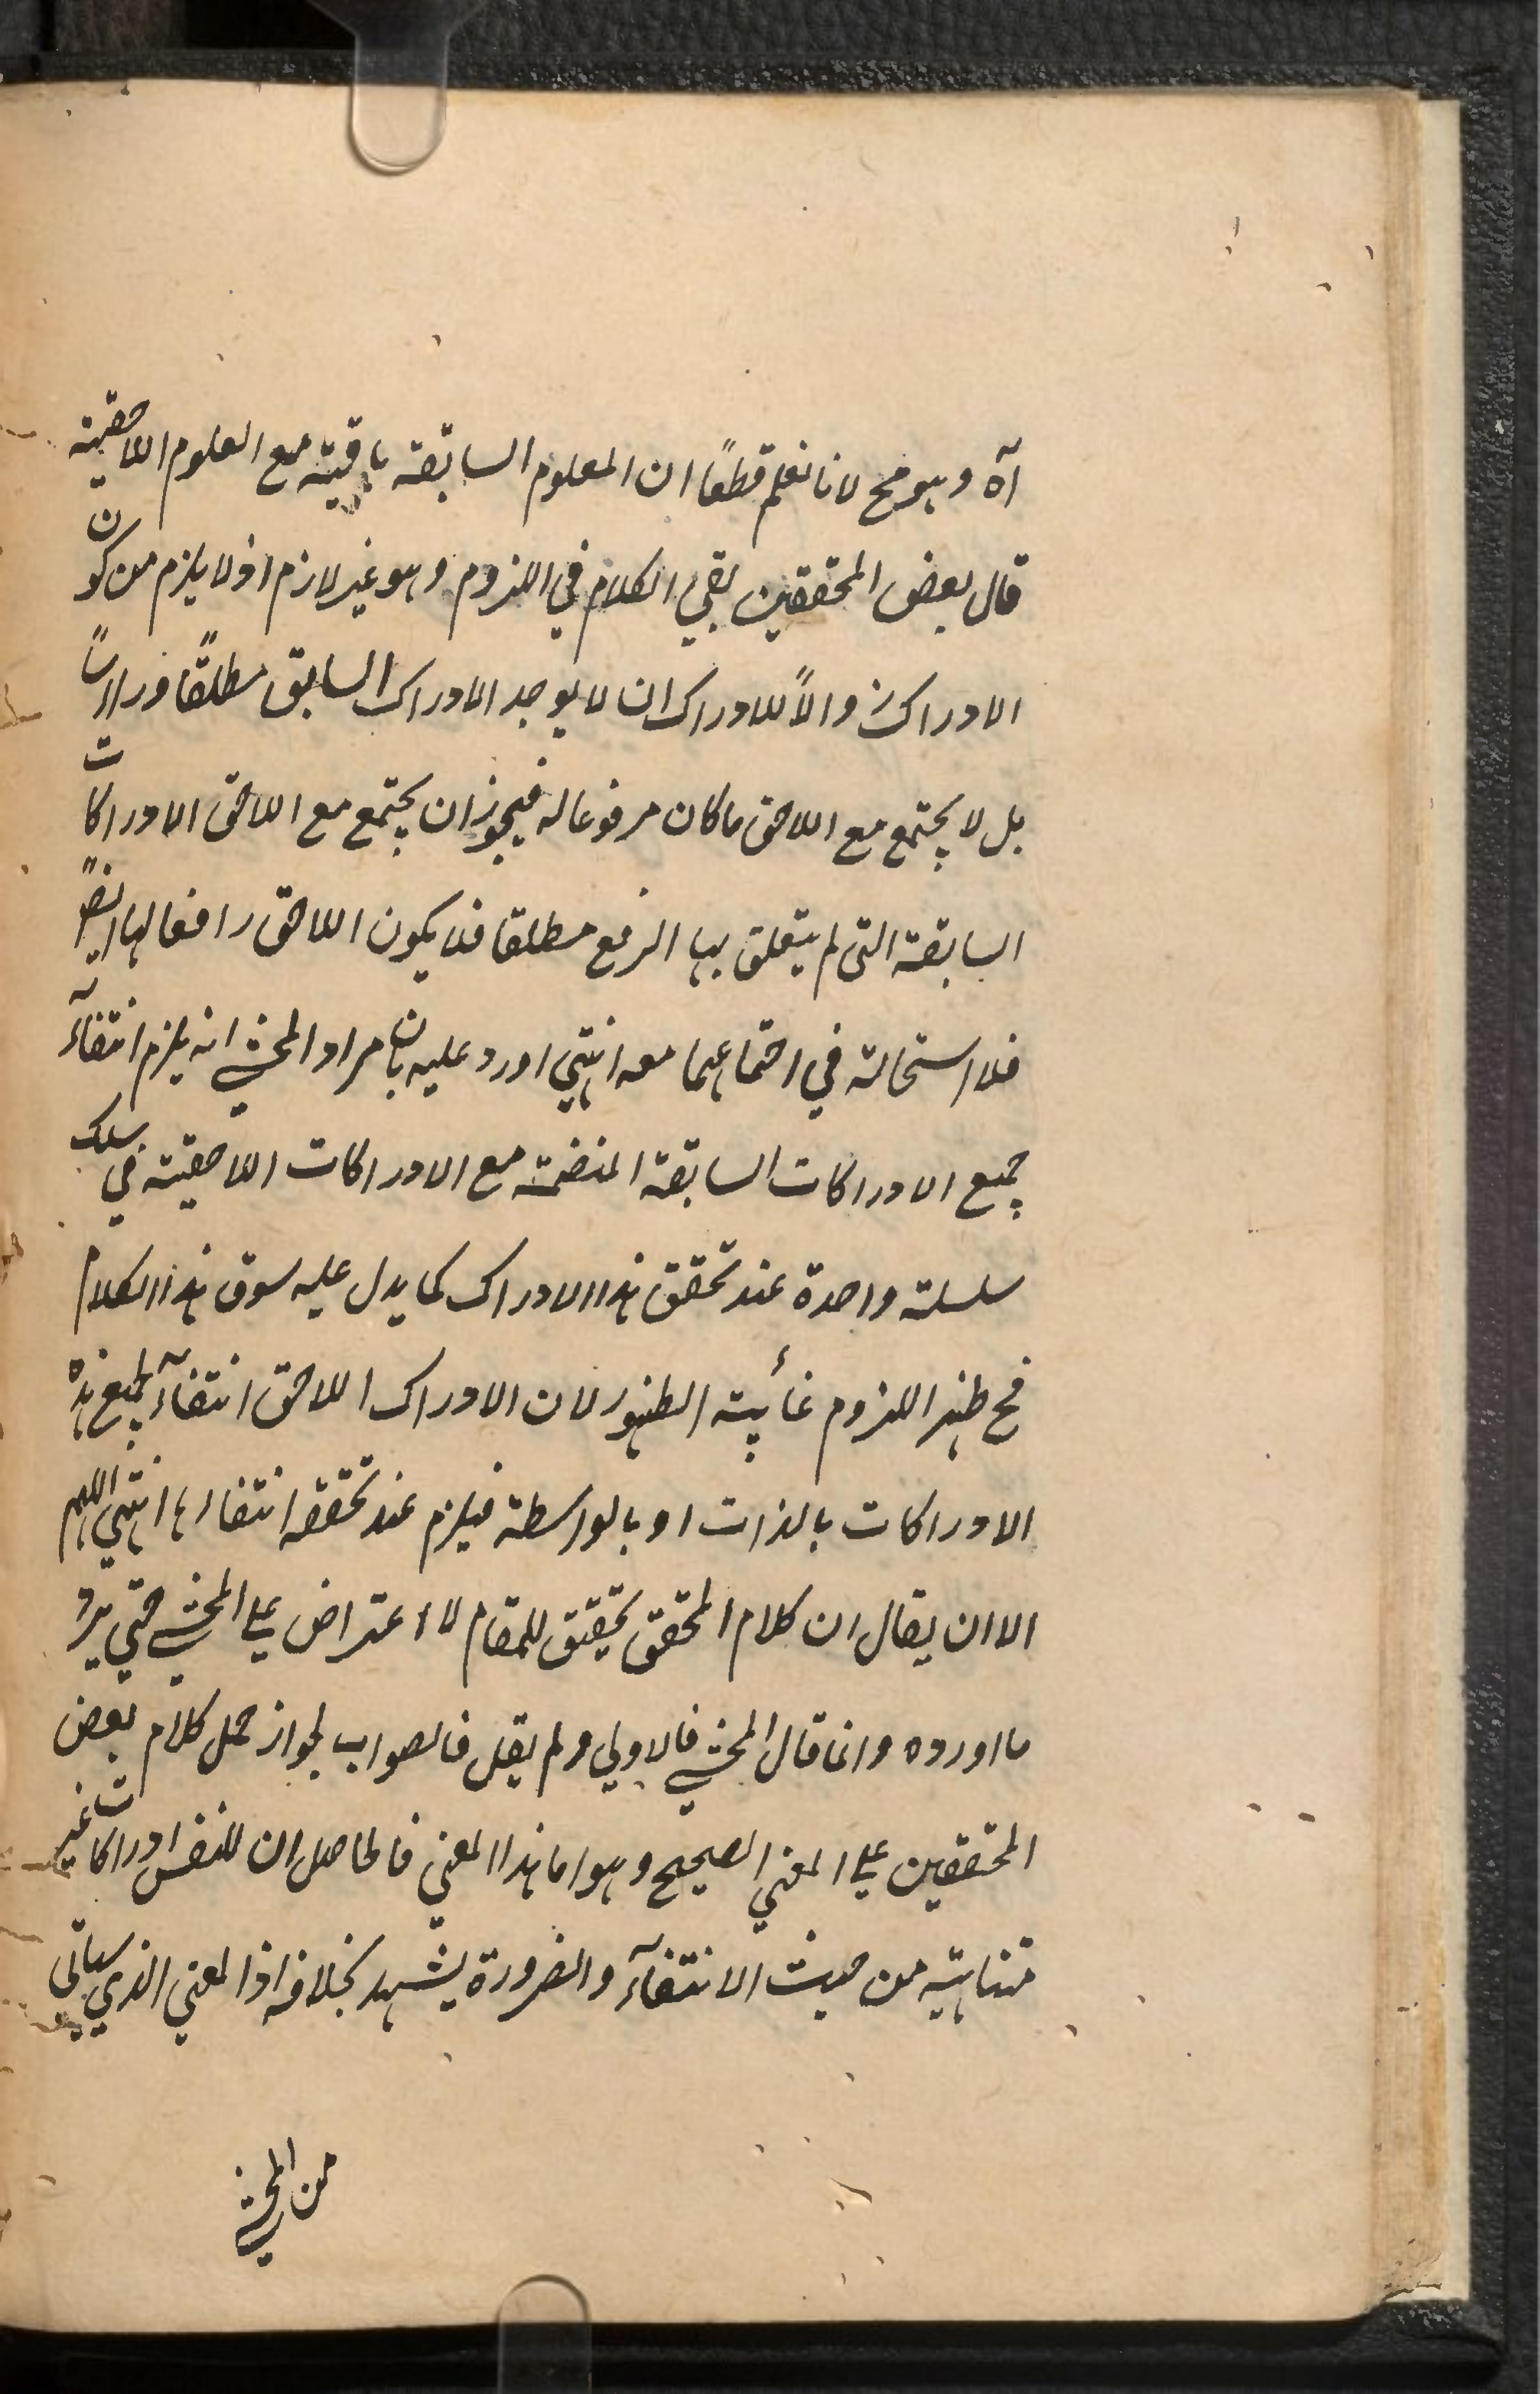 آه وهو مح لانا نعلم قطعًا ان العلوم السابقة باقية مع العلوم اللاحقة
قال بعض المحققين بقي الكلام في اللزوم وهو غير لازم اذ لا يلزم من كون
الادراك زوالاً للادراك ان لا يوجد الادراك السابق مطلقًا
بل لا يجتمع مع اللاحق ما كان مرفوعا له فيجوز ان يجتمع مع اللاحق الادراكات
السابقة التي لم يتعلق بها الرفع مطلقا فلا يكون اللاحق رافعا لها ايضًا
فلا استحالة في اجتماعهما معه انتهى اورد عليه بان مراد المحشي انه يلزم انتفآء
جميع الادراكات السابقة المنضمة مع الادراكات اللاحقية في سلك
سلسلة واحدة عند تحقق هذا الادراك كما يدل عليه سوق هذا الكلام
فح ظهر اللزوم غأية الظهور لان الادراك اللاحق انتفآء لجميع هذه
الادراكات بالذات او بالواسطة فيلزم عند تحققه انتفاءها انتهى اللهم
الا ان يقال ان كلام المحقق تحقيق للمقام لا اعتراض على المحشي حتى يرد
ما اورده وانما قال المحشي فالاولى ولم يقل فالصواب لجواز حمل كلام بعض
المحققين على المعنى الصحيح وهو اما هذا المعنى فالحاصل ان للنفس ادراكات غير
متناهية من حيث الانتفآء والضرورة يشهد بخلافه اذ المعنى الذي سيأتي
من المحشي